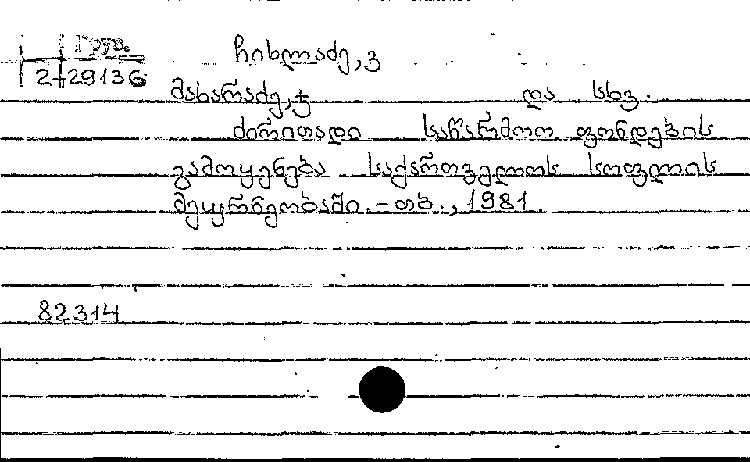 Груз.
2-29136
ჩიხლაძე, ვ
მახარაძე, ჯ და სხვ.
ძირითადი საწარმოო ფონდების
გამოყენება საქართველოს სოფლის
მეურნეობაში. - თბ., 1981.
82314